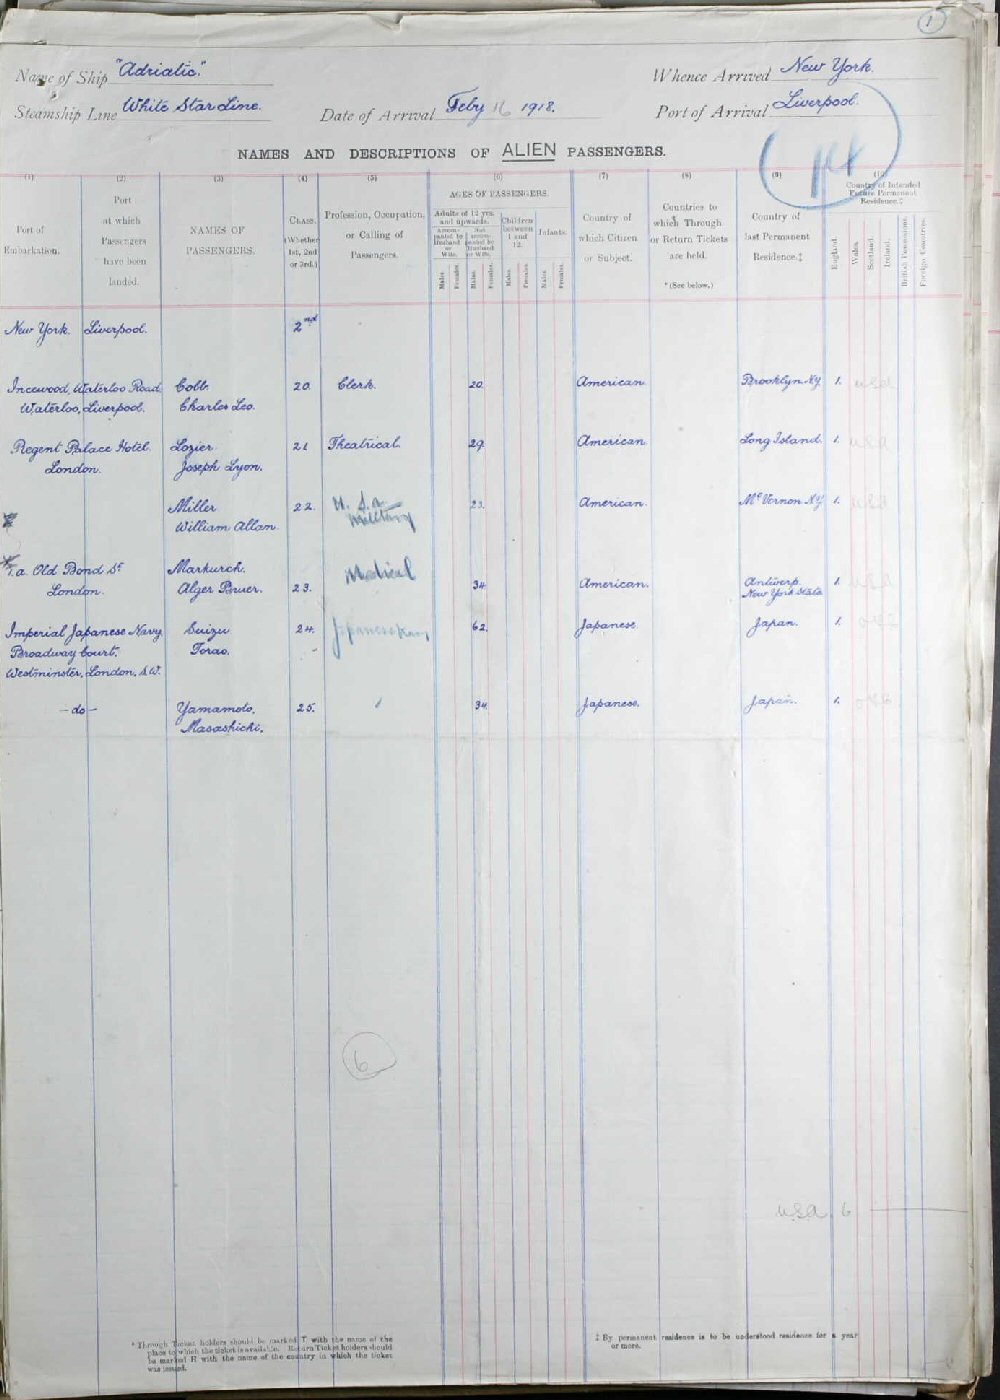 1
Name of Ship "Adriatic." Whence Arrived New York.
Steamship Line White Star Line. Date of Arrival Feby 16 1918. Port of Arrival Liverpool.
NAMES AND DESCRIPTIONS OF ALIEN PASSENGERS.
(1) (2) (3) (4) (5) (6) (7) (8) (9) (10)
Port of Embarkation.
Port at which Passengers have been landed.
NAMES OF PASSENGERS.
CLASS. (Whether 1st, 2nd or 3rd.)
Profession, Occupation, or Calling of Passengers.
AGES OF PASSENGERS.
Adults of 12 yrs. and upwards.
Accompanied by Husband or Wife.
Not accompanied by Husband or Wife.
Children between 1 and 12.
Infants.
Males Females Males Females Males Females Males Females
Country of which Citizen or Subject.
Countries to which Through or Return Tickets are held.
*(See below.)
Country of last Permanent Residence.‡
Country of Intended Future Permanent Residence.‡
England. Wales. Scotland. Ireland. British Possessions. Foreign Countries.
New York. Liverpool. 2nd
Incewood, Waterloo Road, Cobb 20. Clerk. 20. American. Brooklyn N.Y. 1. USA
Waterloo, Liverpool. Charles Leo.
Regent Palace Hotel. Lozier 21 Theatrical. 29. American. Long Island. 1. USA
London. Joseph Lyon.
Miller 22. U.S.A. 23. American. Mt Vernon N.Y. 1. USA
William Allan. Military
a. Old Bond St Markurch. Medical
London. Alger Bruer. 23. 34. American. Antwerp. 1.
New York State
Imperial Japanese Navy Suizu 24. 62. Japanese. Japan. 1.
Broadway Court, Torao.
Westminster, London, S.W.
-do- Yamamoto. 25. 34. Japanese. Japan. 1.
Masashichi.
6
USA. 6
*Through Ticket holders should be marked T with the name of the
place to which the ticket is available. Return Ticket holders should
be marked R with the name of the country in which the ticket
was issued.
‡ By permanent residence is to be understood residence for a year
or more.